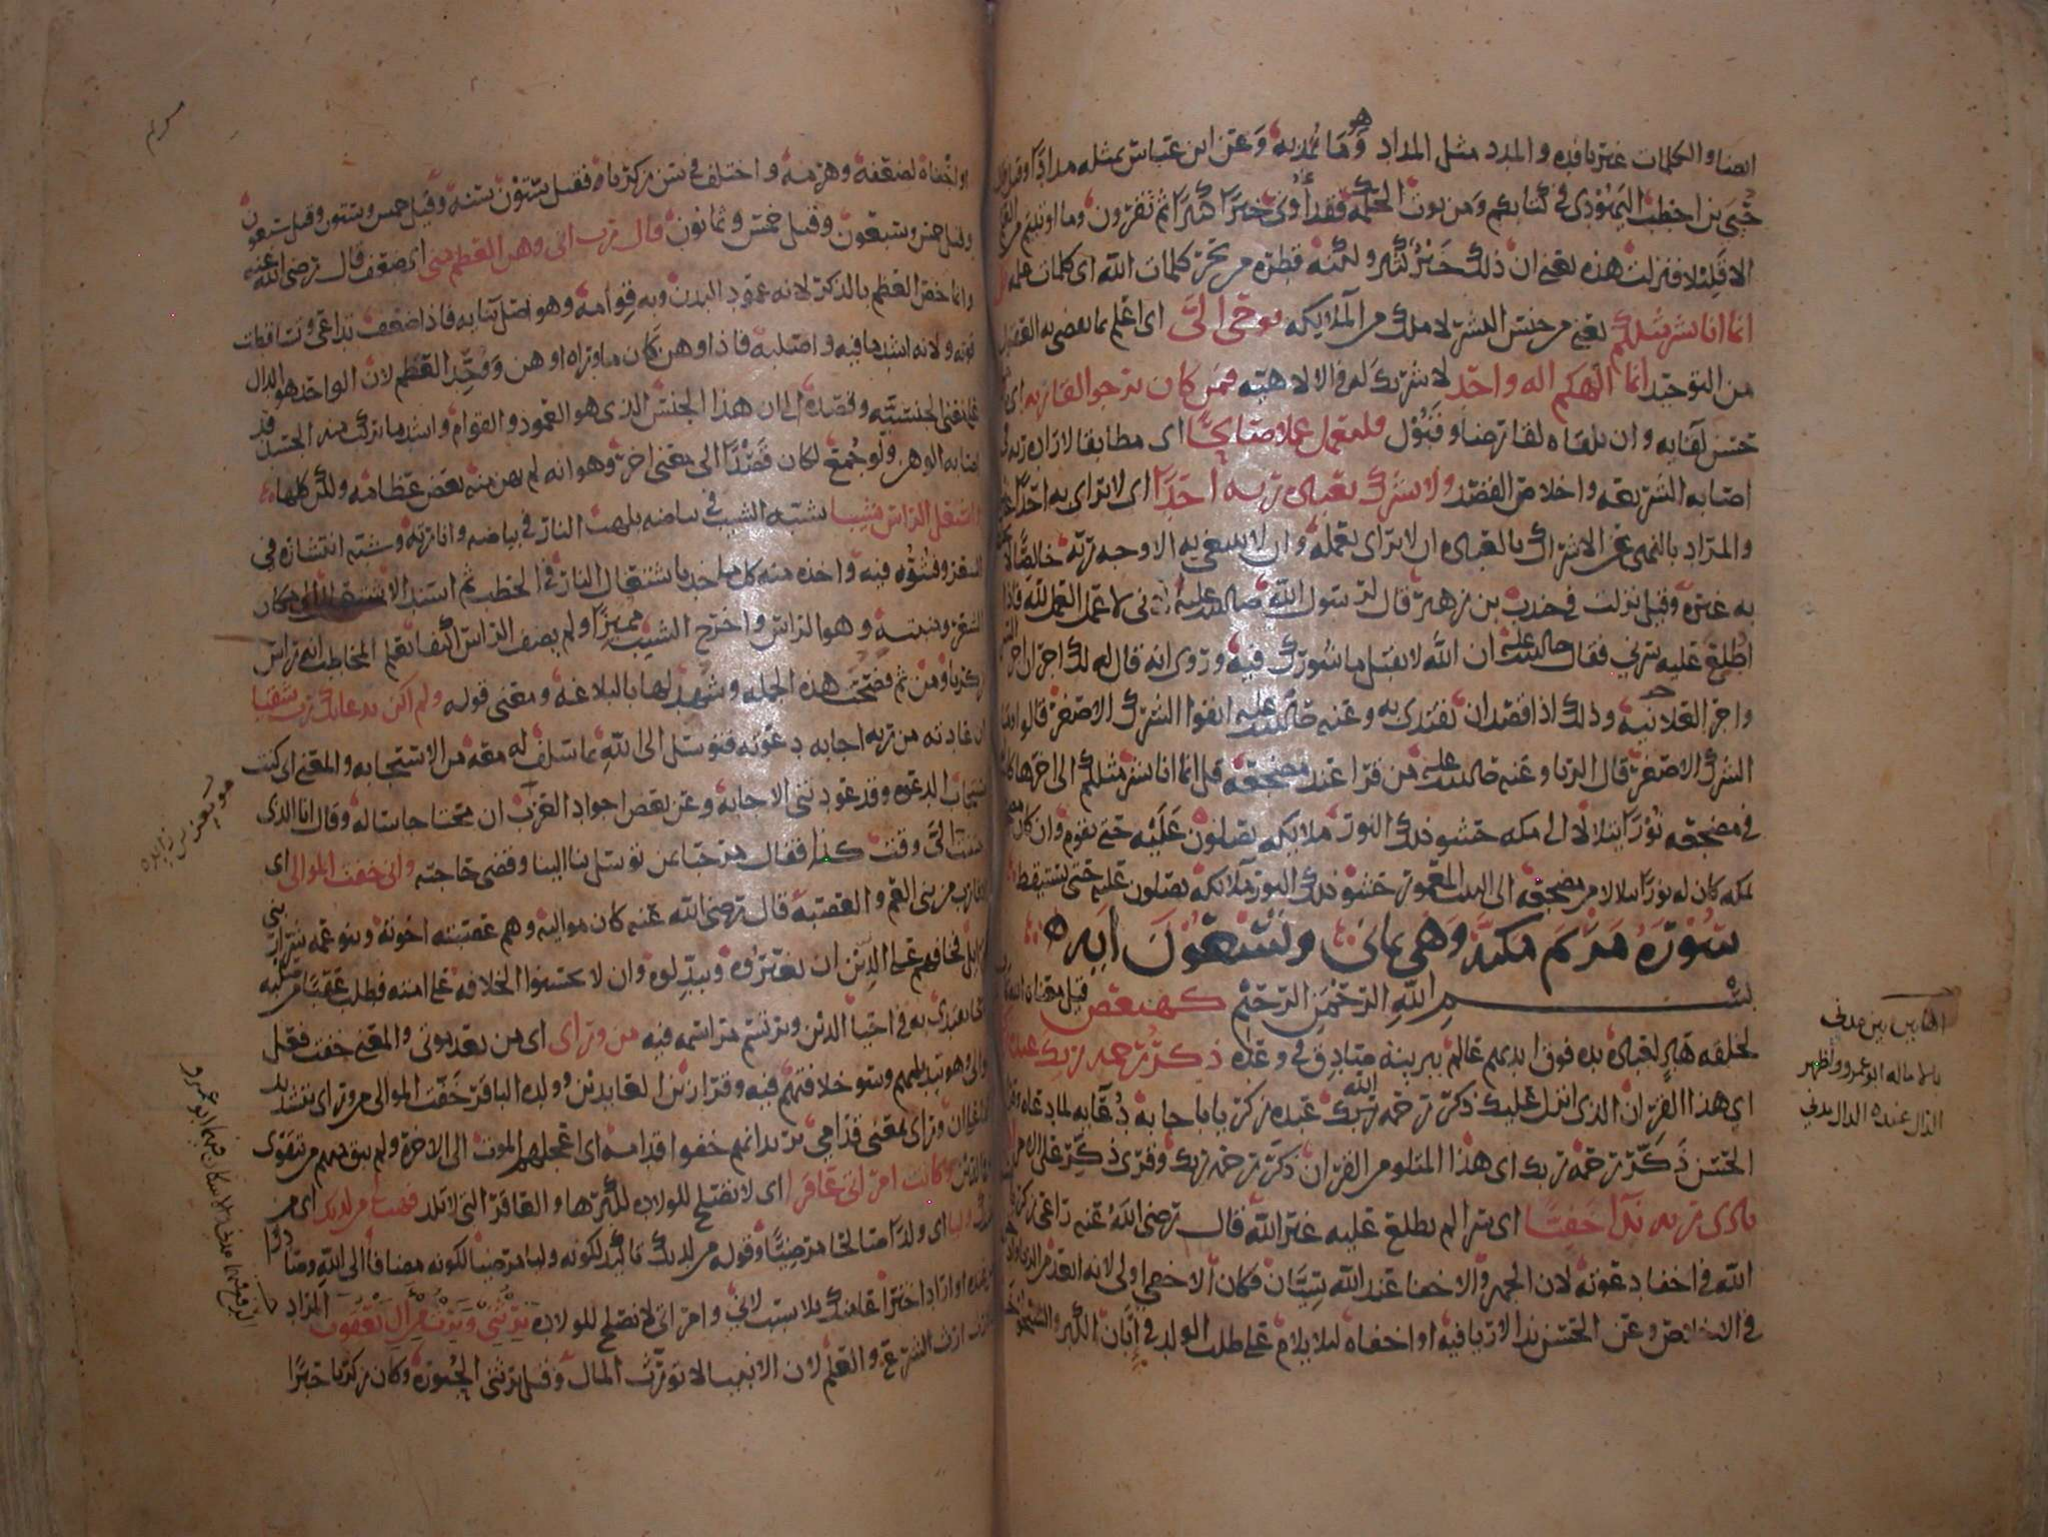 ايضا والكلمات غير نافده والمدد مثل المداد وهو ما يُمد به وَعَن ابن عباس بمثله مدادًا وقيل قال
حُيَي بن اخطب اليهودى فى كتابكم وَمن يوت الحكمه فقد أوتى خيرًا كثيرًا ثم تقرون وما اوتيتم من العلم
الا قليلا فنزلت هذه يعنى ان ذلك خَيْرٌ كثير ولكنه قطرة من بحر كلمات الله اى كلمات علمه قل
انما انا بشر مثلكم يعنى من جنس البشر لا ملك من الملايكه يوحى الىَّ اى اعلم بما
من التوحيد انما الهكم اله واحد لا شريك له فى الالاهيّه فمن كان يرجوا لقا ربه اى
حسن لقايه وان يلقاه لقا رضا وقبُوْل فليعمل عملا صالحًا اى مطابقا لاراده ربه
اصابه الشريعه واخلاص القصد ولا يشرك بعباده ربه احدًا اى لا يراى به احدًا
والمراد بالنهى عن الاشراك بالعباده ان لا يراى بعمله وان لا يبتغى به الا وجه ربه خالصًا لا
به غيره وقيل نزلت فى جندب بن زهير قال لرسول الله صلى الله عليه انى لاعمل العمل لله فاذا
اطلع عليه سرنى فقال صلى الله عليه ان الله لا يقبل ما شورك فيه وروى انه قال له لك اجران اجر
واجر العلانيه وذلك اذا قصد ان يقتدى به وعنه صلى الله عليه اتقوا الشرك الاصغر قالوا وما
الشرك الاصغر قال الريا وعنه صلى الله عليه من قرا عند مضجعه قل انما انا بشر مثلكم الى اخرها كان
فى مضجعه نُوْرًا يتلالا الى مكه حشو ذلك النور ملايكه يصلون عَلَيْه حتى يقوم وان كان
بمكه كان له نورًا يتلالا من مضجعه الى البيت المعمور حشو ذلك النور ملايكه يصلون عليه حتى يستيقظ
سُوْرَة مَرْيَم مكيَّة وَهْى ثمانى وتسْعُوْن آيَه
بسم الله الرَّحْمٰن الرَّحيم كهيعص قيل معناه
لخلقه هاد لعباده يده فوق ايديهم عالم ببريته صادق فى وعده ذكر رحمه ربك عبده
اى هذا القران الذى انزل عليك ذكر رحمه ربك عبده زكريا باجابه دُعَايه لما دعاه
الحسن ذَكَّرَ رحمة ربك اى هذا المتلو من القران ذكر رحمه ربك وقرى ذكِّر على الامر
نادى ربه ندآ خَفيًّا اى سرا لم يطلع عليه غير الله قال رضى الله عنه راعى زكريا
الله فى اخفا دعوته لان الجهر والاخفا عند الله سِيَّان فكان الاخفا اولى لانه ابعد من الريا وادخل
فى الاخلاص وعن الحسن ندا لا ريا فيه او اخفاه ليلا يلام على طلب الولد فى إبّان الكبر والشيخوخه
القاس بين بين مدنى
بالاماله ابو عمرو واظهر
الذال عنده الدال مدنى
مريم
او اخفاه لضعفه وهرمه واختلف فى سن زكريا فقيل ستون سنه وقيل خمس وستون وقيل سبعون
وقيل خمس وسبعون وقيل خمس وثمانون قال رب انى وهن العظم منى اى ضعف قال رضى الله عنه
وانما خص العظم بالذكر لانه عمود البدن وبه قوامه وهو اصل بنايه فاذا ضعف تداعى وتساقطت
قوته ولانه اشد ما فيه واصلبه فاذا وهن كان ما وراه اوهن وَوَحَّد العظم لان الواحد هو الدال
على معنى الجنسيه وقصده الى ان هذا الجنس الذى هو العمود والقوام واشد ما تركب منه الجسد قد
اصابه الوهن ولو جُمع لكان قصْدًا الى معنى اخر وهو انه لم يهن منه بعض عظامه ولكن كلها
واشتعل الراس شيبا شبه الشيب فى بياضه بلهب النار فى بياضه وانارته وشبه انتشاره فى
الشعر وفشُوَّه فيه واخذه منه كل ماخذ باشتعال النار فى الحطب ثم اسند الاشتعال الى مكان
الشعر ومنبته وهو الراس واخرج الشيب مميزًا ولم يضف الراس اكتفا بعلم المخاطب انه راس
زكريا ومن ثم فصحت هذه الجمله وشهد لها بالبلاغه ومعنى قوله ولم اكن بدعايك رب شقيا
ان عادته من ربه اجابه دعوته فتوسل الى الله بما سلف له معه من الاستجابه والمعنى اى كنت
مستجاب الدعوه وقد عودتنى الاجابه وعن بعض اجواد العرب ان محتاجا ساله وقال انا الذى
احسنت الىّ وقت كذا فقال مرحبا بمن توسل بنا الينا وقضى حاجته وانى خفت الموالى اى
الاقارب من بنى العم والعصبه قال رضى الله عنه كان مواليه وهم عصبته اخوته وبنو عمه شرار بنى
اسرايل فخافهم على الدين ان يغيروه ويبدلوه وان لا يحسنوا الخلافه على امته فطلب عقبا من صلبه
صالحا يقتدى به فى احيا الدين ويرتسم مراسمه فيه من وراى اى من بعد موتى والمعنى خفت فعل
الموالى وهو تبديلهم وسو خلافتهم فيه وقرا زين العابدين وولده الباقر خَفّت الموالى من وراى بتشديد
الفا وان وراى بمعنى قدامى يريد انهم خفوا قدامه اى اعجلهم الموت الى الاخره ولم يبق منهم من تقوى
بالدين وكانت امراتى عاقرا اى لا تصلح للولاده لكبرها والعاقر التى لا تلد فهب لى من لدنك اى من
وليا اى ولدًا صالحا مرضيًّا وقوله من لدنك تاكيد لكونه وليا مرضيا لكونه مضافا الى الله وصادرا
من عنده او اراد اختراعا منك بلا سبب لانى وامراتى لا نصلح للولاده يرثنى ويرث من ال يعقوب المراد
بالارث ارث الشرع والعلم لان الانبيا لا تورث المال وقيل يرثنى الحُبُوْرَة وكان زكريا حبرًا